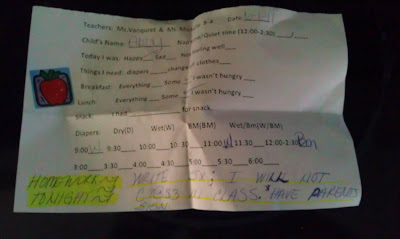 Teachers: Ms.Vanquist & Mr. B-4 Date:
Child's Name: Nap Time/Quiet time (12:00-2:30) ___/___
Today I was: Happy___ Sad___ Not feeling well___
Things I need: diapers____ change of clothes___
Breakfast: Everything__ Some__ I wasn't hungry ___
Lunch: Everything__ Some__ I wasn't hungry ___
Snack: I had________ for snack.
Diapers: Dry(D) Wet(W) BM(BM) Wet/Bm(W/BM)
9:00 W 9:30___ 10:00___10:30___ 11:00 W 11:30___12:00-2:30
3:00___3:30___4:00___4:30___5:00___5:30___6:00___
HOMEWORK WRITE 5X: I WILL NOT
TONIGHT CUSS IN CLASS. HAVE PARENTS
SIGN